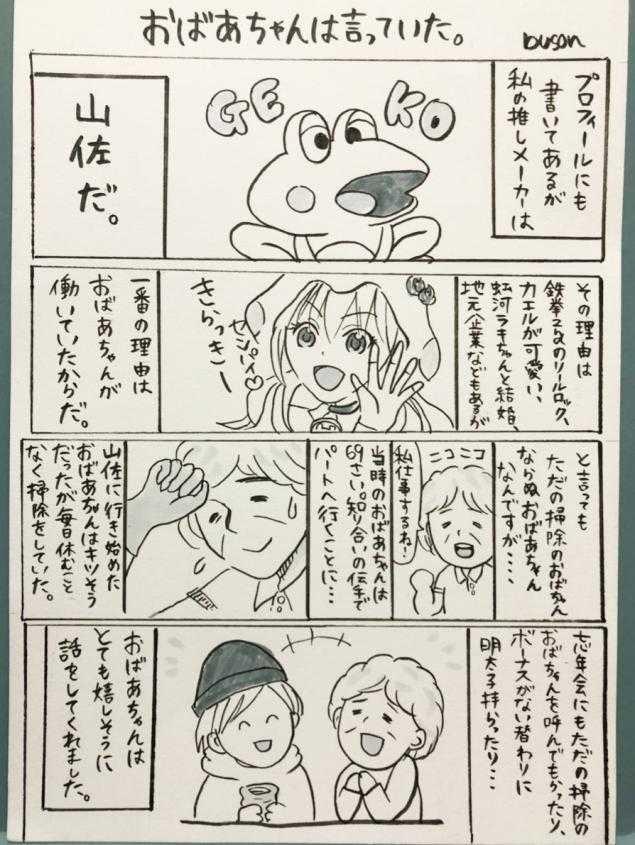 おばあちゃんは言っていた。
busan
プロフィールにも
書いてあるが
私の推しメーカーは
GEKO
山佐だ。
その理由は
鉄拳2ndのリールロック、
カエルが可愛い、
虹河ラキちゃんと結婚、
地元企業などもあるが
きらっきー
センパイ♡
一番の理由は
おばあちゃんが
働いていたからだ。
と言っても
ただの掃除のおばちゃん
ならぬおばあちゃん
なんですが・・・・
ニコニコ
私仕事するね!
当時のおばあちゃんは
69さい。知り合いの伝手で
パートへ行くことに・・・
山佐に行き始めた
おばあちゃんはキツそう
だったが毎日休むこと
なく掃除をしていた。
忘年会にもただの掃除の
おばちゃんを呼んでもらったり、
ボーナスがない替わりに
明太子持らったり・・・
おばあちゃんは
とても嬉しそうに
話をしてくれました。